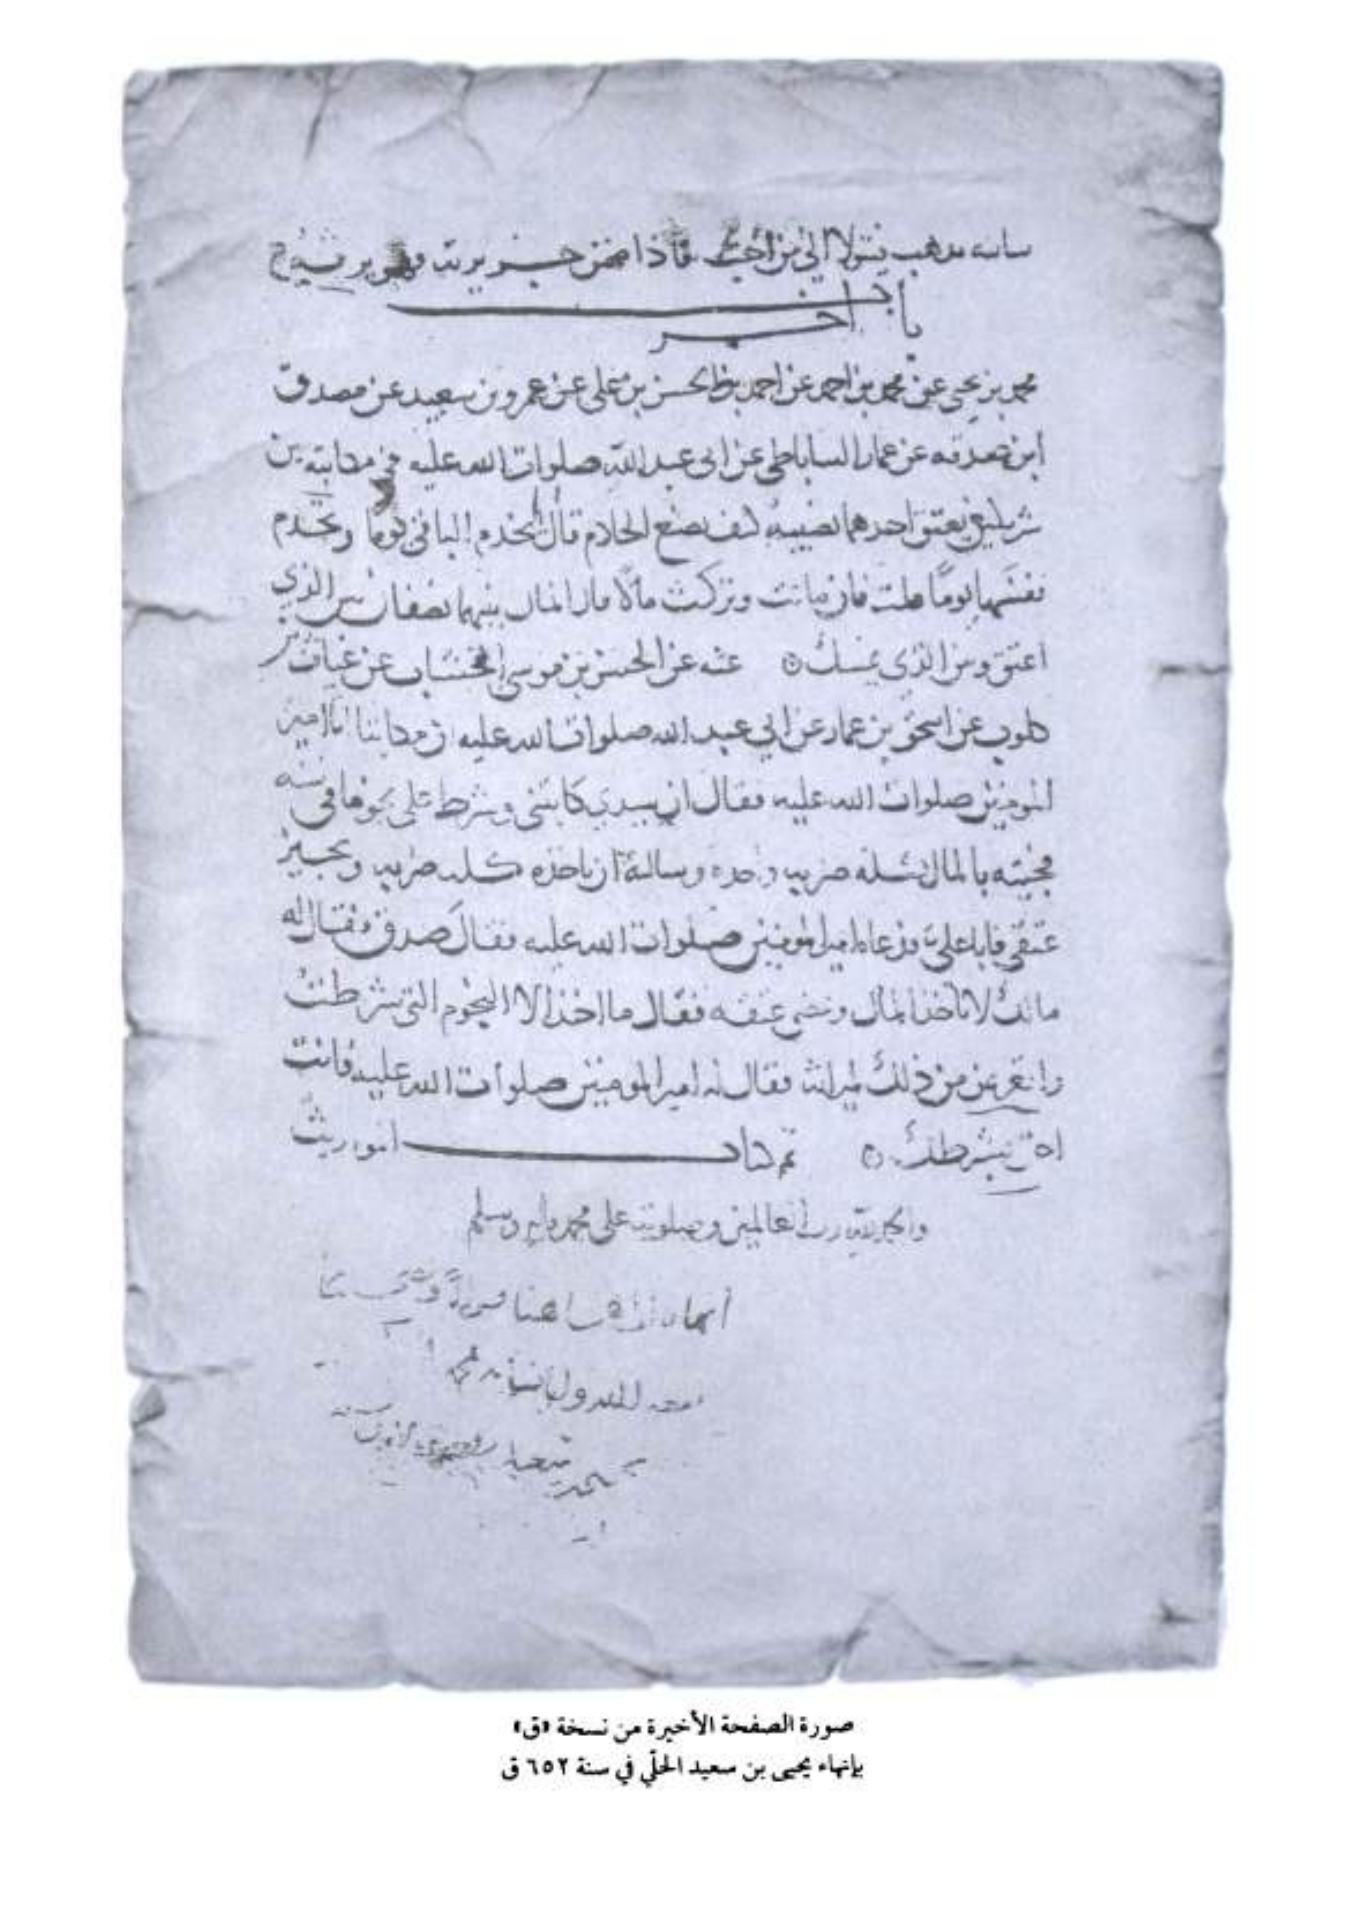 سايبه يذهب فيتولا الي من احب فاذا ضمن جريرته فهو يرثه
باب اخر
محمد بن يحيى عن محمد بن احمد عن احمد بن الحسن بن علي عن عمرو بن سعيد عن مصدق
ابن صدقه عن عمار الساباطي عن ابي عبد الله صلوات الله عليه في مكاتبه بين
شريكين يعتق احدهما نصيبه كيف يصنع الخادم قال تخدم الباقي يوما وتخدم
نفسها يوما قلت فان ماتت وتركت مالا قال المال بينهما نصفان بين الذي
اعتق وبين الذي يمسك عنه عن الحسن بن موسى الخشاب عن غياث بن
كلوب عن اسحق بن عمار عن ابي عبد الله صلوات الله عليه ان مكاتبا اتا امير
المومنين صلوات الله عليه فقال ان سيدي كاتبني وشرط علي نجوما في سنه
فجيته بالمال كله ضربه واحده وسالته ان ياخذه كله ضربه ويجيز
عتقي فابا علي فدعاه امير المومنين صلوات الله عليه فقال صدق فقال له
مالك لا تاخذ المال وتمضي عتقه فقال ما اخذ الا النجوم التي شرطت
واتعرض من ذلك لميراثه فقال له امير المومنين صلوات الله عليه فانت
احق بشرطك تم كتاب المواريث
والحمد لله رب العالمين وصلوته على محمد واله وسلم
صورة الصفحة الأخيرة من نسخة «ق»
بإنهاء يحيى بن سعيد الحلّي في سنة ٦٥٢ ق